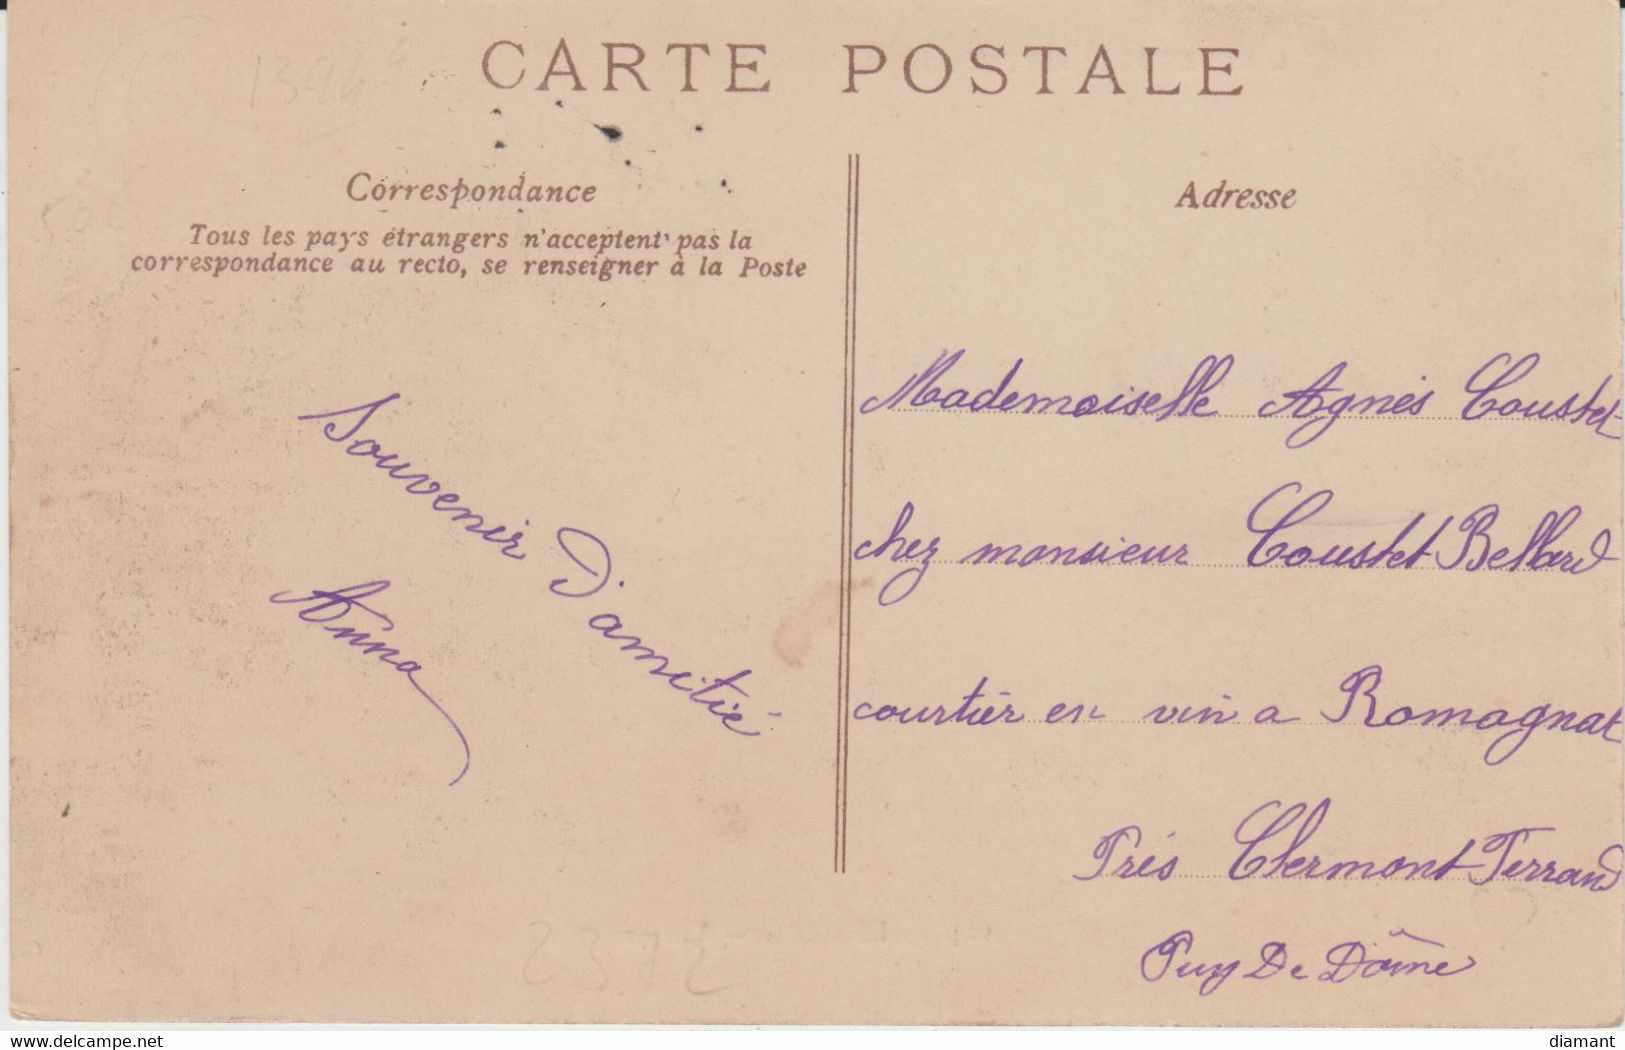 CARTE POSTALE
Correspondance
Tous les pays étrangers n'acceptent pas la
correspondance au recto, se renseigner à la Poste
Souvenir D'amitié
Anna
Adresse
Mademoiselle Agnès Coustet
chez monsieur Coustet Bellard
courtier en vin a Romagnat
Près Clermont-Ferrand
Puy De Dôme
2372
www.delcampe.net
diamant